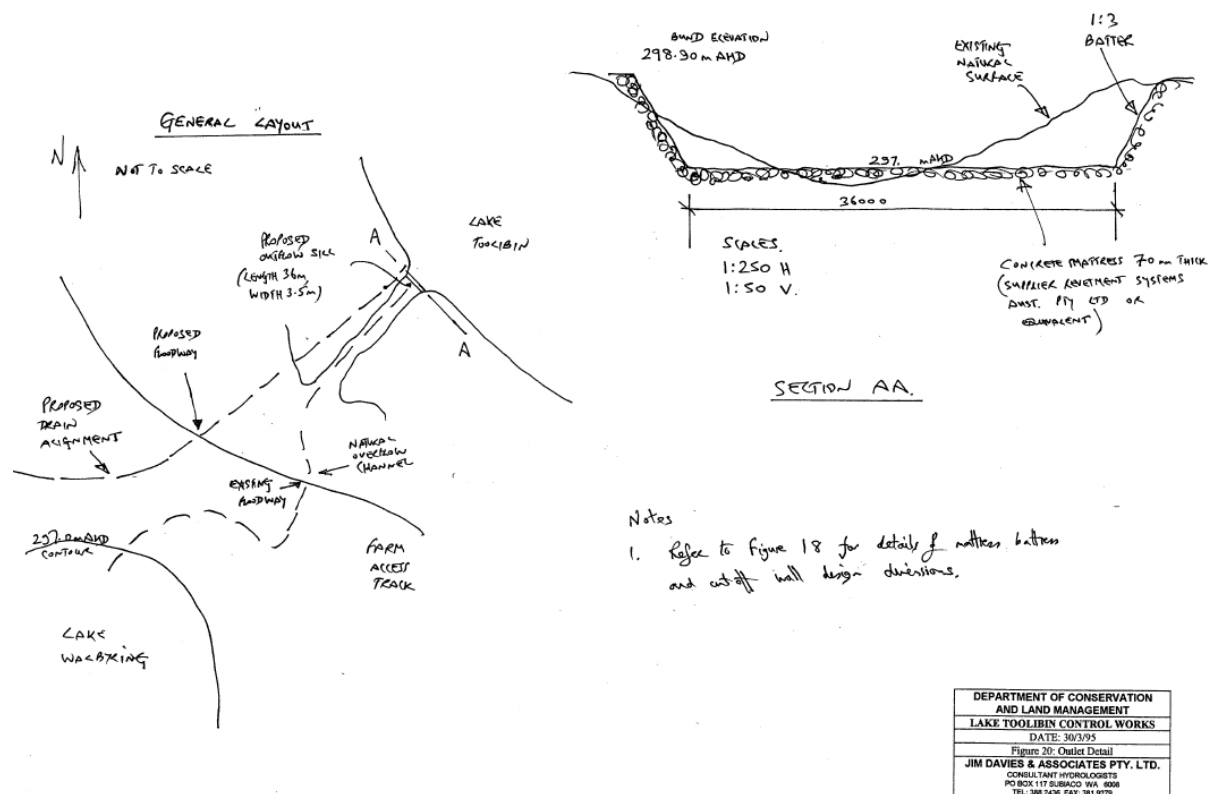 GENERAL LAYOUT
N
NOT TO SCALE
A
LAKE
TOOLIBIN
PROPOSED
OUTFLOW SILL
(LENGTH 36m,
WIDTH 3.5m)
A
PROPOSED
FLOODWAY
PROPOSED
DRAIN
ALIGNMENT
NATURAL
OVERFLOW
CHANNEL
EXISTING
FLOODWAY
297.0mAHD
CONTOUR
FARM
ACCESS
TRACK
LAKE
WALBYRING
BUND ELEVATION
298.90m AHD
EXISTING
NATURAL
SURFACE
1:3
BATTER
297. mAHD
36000
SCALES.
1:250 H
1:50 V.
CONCRETE MATTRESS 70mm THICK
(SUPPLIER REVETMENT SYSTEMS
AUST. PTY LTD OR
EQUIVALENT)
SECTION AA.
Notes
1. Refer to Figure 18 for details of mattress battress
and cutoff wall design dimensions.
DEPARTMENT OF CONSERVATION
AND LAND MANAGEMENT
LAKE TOOLIBIN CONTROL WORKS
DATE: 30/3/95
Figure 20: Outlet Detail
JIM DAVIES & ASSOCIATES PTY. LTD.
CONSULTANT HYDROLOGISTS
PO BOX 117 SUBIACO WA 6008
TEL: 388 2436 FAX: 381 9279